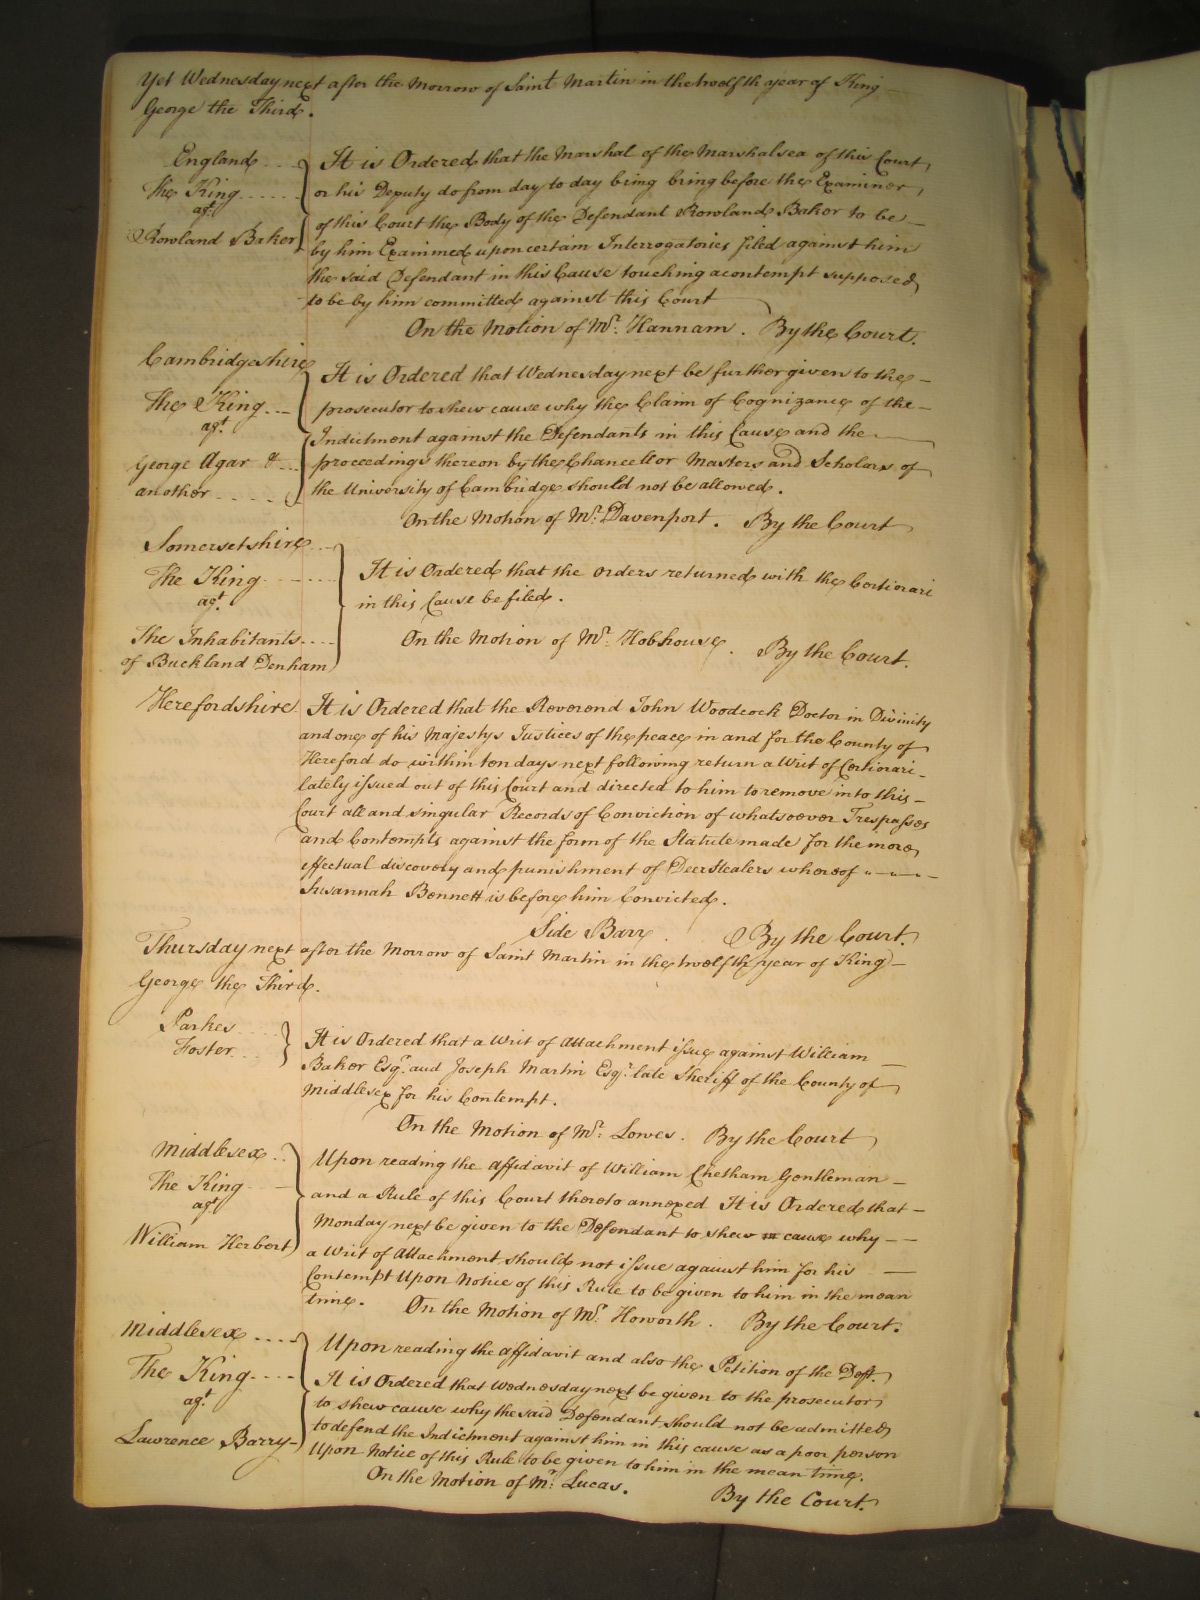 Yet Wednesday next after the Morrow of Saint Martin in the twelfth year of King
George the Third.
England
The King
agt
Rowland Baker
It is Ordered that the Marshal of the Marshalsea of this Court
or his Deputy do from day to day being bring before the Examiner
of this Court the Body of the Defendant Rowland Baker to be
by him Examined upon certain Interrogatories filed against him
the said Defendant in this Cause touching a contempt supposed
to be by him committed against this Court
On the Motion of Mr. Hannam. By the Court.
Cambridgeshire
The King
agt.
George Agar &
another
It is Ordered that Wednesday next be further given to the
prosecutor to shew cause why the Claim of Cognizance of the
Indictment against the Defendants in this Cause and the
proceedings thereon by the Chancellor Masters and Scholars of
the University of Cambridge should not be allowed.
On the Motion of Mr. Davenport. By the Court
Somersetshire
The King
agt.
The Inhabitants
of Buckland Denham
It is Ordered that the orders returned with the Certiorari
in this Cause be filed.
On the Motion of Mr. Hobhouse. By the Court.
Herefordshire
It is Ordered that the Reverend John Woodcock Doctor in Divinity
and one of his Majestys Justices of the peace in and for the County of
Hereford do within ten days next following return a Writ of Certiorari
lately issued out of this Court and directed to him to remove into this
Court all and singular Records of Conviction of whatsoever Trespasses
and Contempts against the form of the Statute made for the more
effectual discovery and punishment of Deer Stealers whereof
Susannah Bennett is before him Convicted.
Side Barr. By the Court.
Thursday next after the Morrow of Saint Martin in the twelfth year of King
George the Third.
Parkes
Foster
It is Ordered that a Writ of Attachment issue against William
Baker Esqr. and Joseph Martin Esqr. late Sheriff of the County of
Middlesex for his Contempt.
On the Motion of Mr. Lowes. By the Court
Middlesex
The King
agt
William Herbert
Upon reading the affidavit of William Chetham Gentleman
and a Rule of this Court thereto annexed It is Ordered that
Monday next be given to the Defendant to shew cause why
a Writ of Attachment should not issue against him for his
Contempt Upon Notice of this Rule to be given to him in the mean
time. On the Motion of Mr. Howorth. By the Court.
Middlesex
The King
agt.
Lawrence Barry
Upon reading the affidavit and also the Petition of the Deft.
It is Ordered that Wednesday next be given to the prosecutor
to shew cause why the said Defendant should not be admitted
to defend the Indictment against him in this cause as a poor person
Upon Notice of this Rule to be given to him in the mean time.
On the Motion of Mr. Lucas. By the Court.